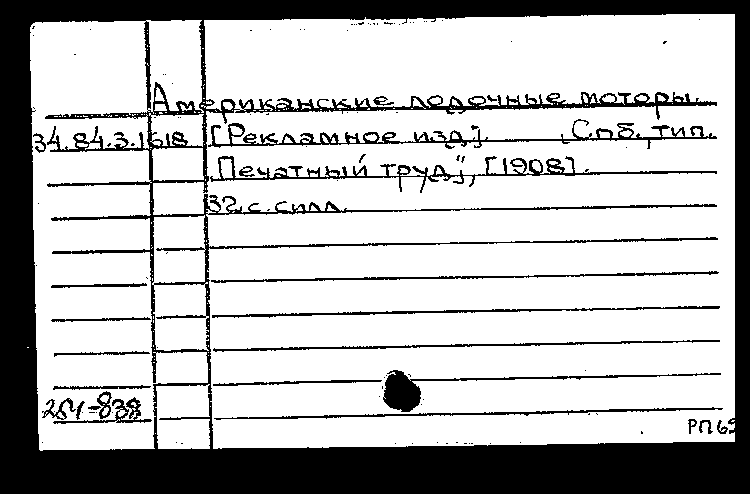 Американские лодочные моторы.
34.84.3.1618 [Рекламное изд]. Спб., тип.
„Печатный труд", [1908].
32 с. с илл.
254-838
РП 65